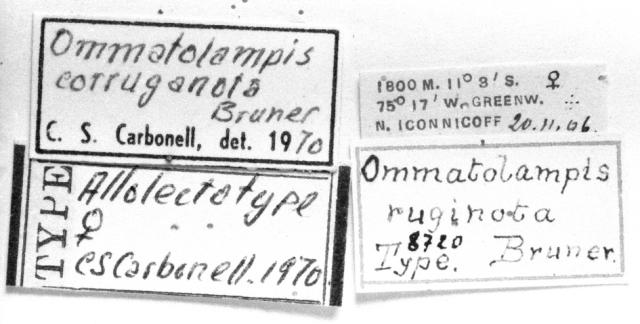 Ommatolampis
corruganota
Bruner
C. S. Carbonell, det. 1970
TYPE
Allolectotype
♀
CSCarbonell. 1970
1800 M. 11° 3' S. ♀
75° 17' W. GREENW.
N. ICONNICOFF 20.11.06.
Ommatolampis
ruginota
8720
Type. Bruner.